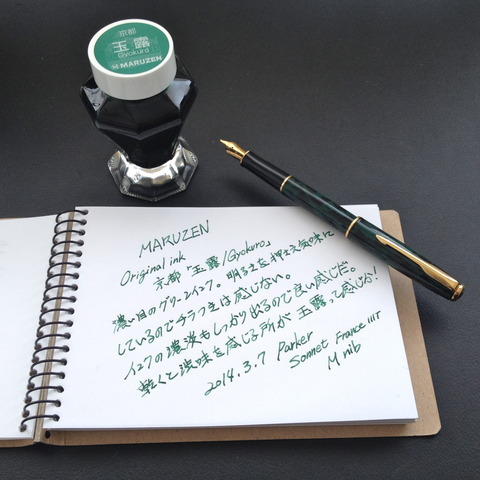 京都
玉露
Gyokuro
MARUZEN
MARUZEN
Original ink
京都「玉露/Gyokuro」
濃い目のグリーンインク。明るさを抑え元気味に
しているのでチラつきは感じない。
インクの濃淡もしっかり出るので良い感じだ。
乾くと渋味を感じる所が玉露って感じか!
2014.3.7 Parker
Sonnet France IIIT
M nib